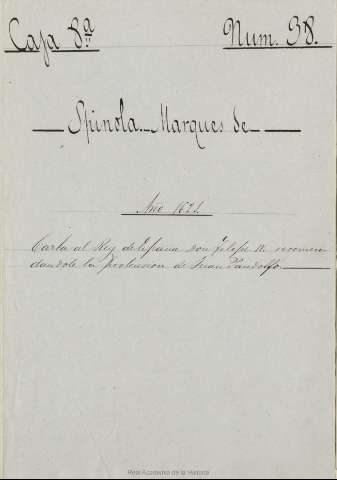 Caja 8ª Num. 38.
Spinola. Marques de
Año 1621.
Carta al Rey de España Don Felipe recomen
dandole la pretension de Juan Pandolfo.
Real Academia de la Historia